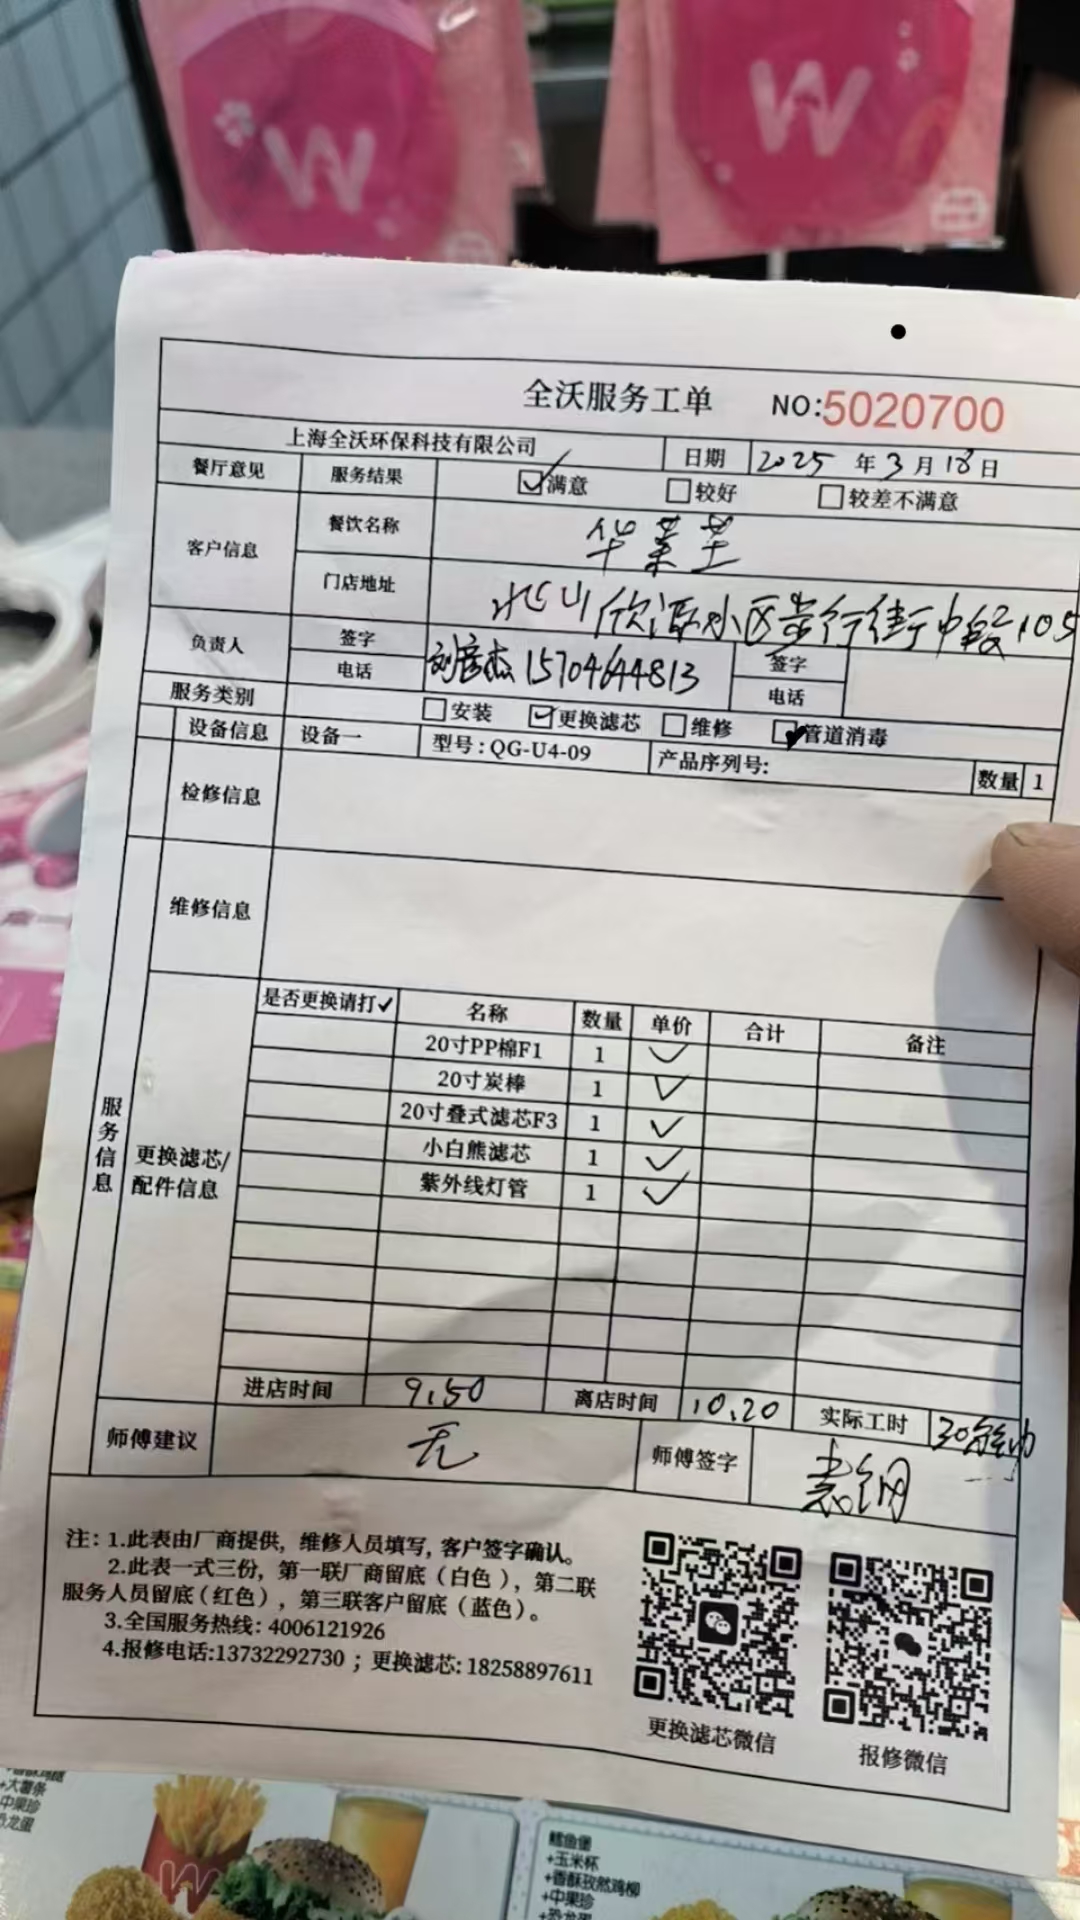 W
W
全沃服务工单 NO:5020700
上海全沃环保科技有限公司 日期 2025 年 3 月 18 日
餐厅意见 服务结果 满意 较好 较差不满意
客户信息 餐饮名称 华莱士
门店地址 冰山欣源小区步行街中段105
负责人 签字 刘彦杰 签字
电话 15704644813 电话
服务类别 安装 更换滤芯 维修 管道消毒
设备信息 设备一 型号:QG-U4-09 产品序列号: 数量 1
检修信息
维修信息
服务信息
更换滤芯/
配件信息
是否更换请打✓ 名称 数量 单价 合计 备注
20寸PP棉F1 1 ✓
20寸炭棒 1 ✓
20寸叠式滤芯F3 1 ✓
小白熊滤芯 1 ✓
紫外线灯管 1 ✓
进店时间 9.50 离店时间 10.20 实际工时 30分钟
师傅建议 无 师傅签字
注: 1.此表由厂商提供, 维修人员填写, 客户签字确认。
2.此表一式三份, 第一联厂商留底(白色), 第二联
服务人员留底(红色), 第三联客户留底(蓝色)。
3.全国服务热线: 4006121926
4.报修电话:13732292730 ; 更换滤芯: 18258897611
更换滤芯微信 报修微信
+大薯条
中果珍
恐龙蛋
鳕鱼堡
+玉米杯
+香酥孜然鸡柳
+中果珍
+恐龙蛋
W